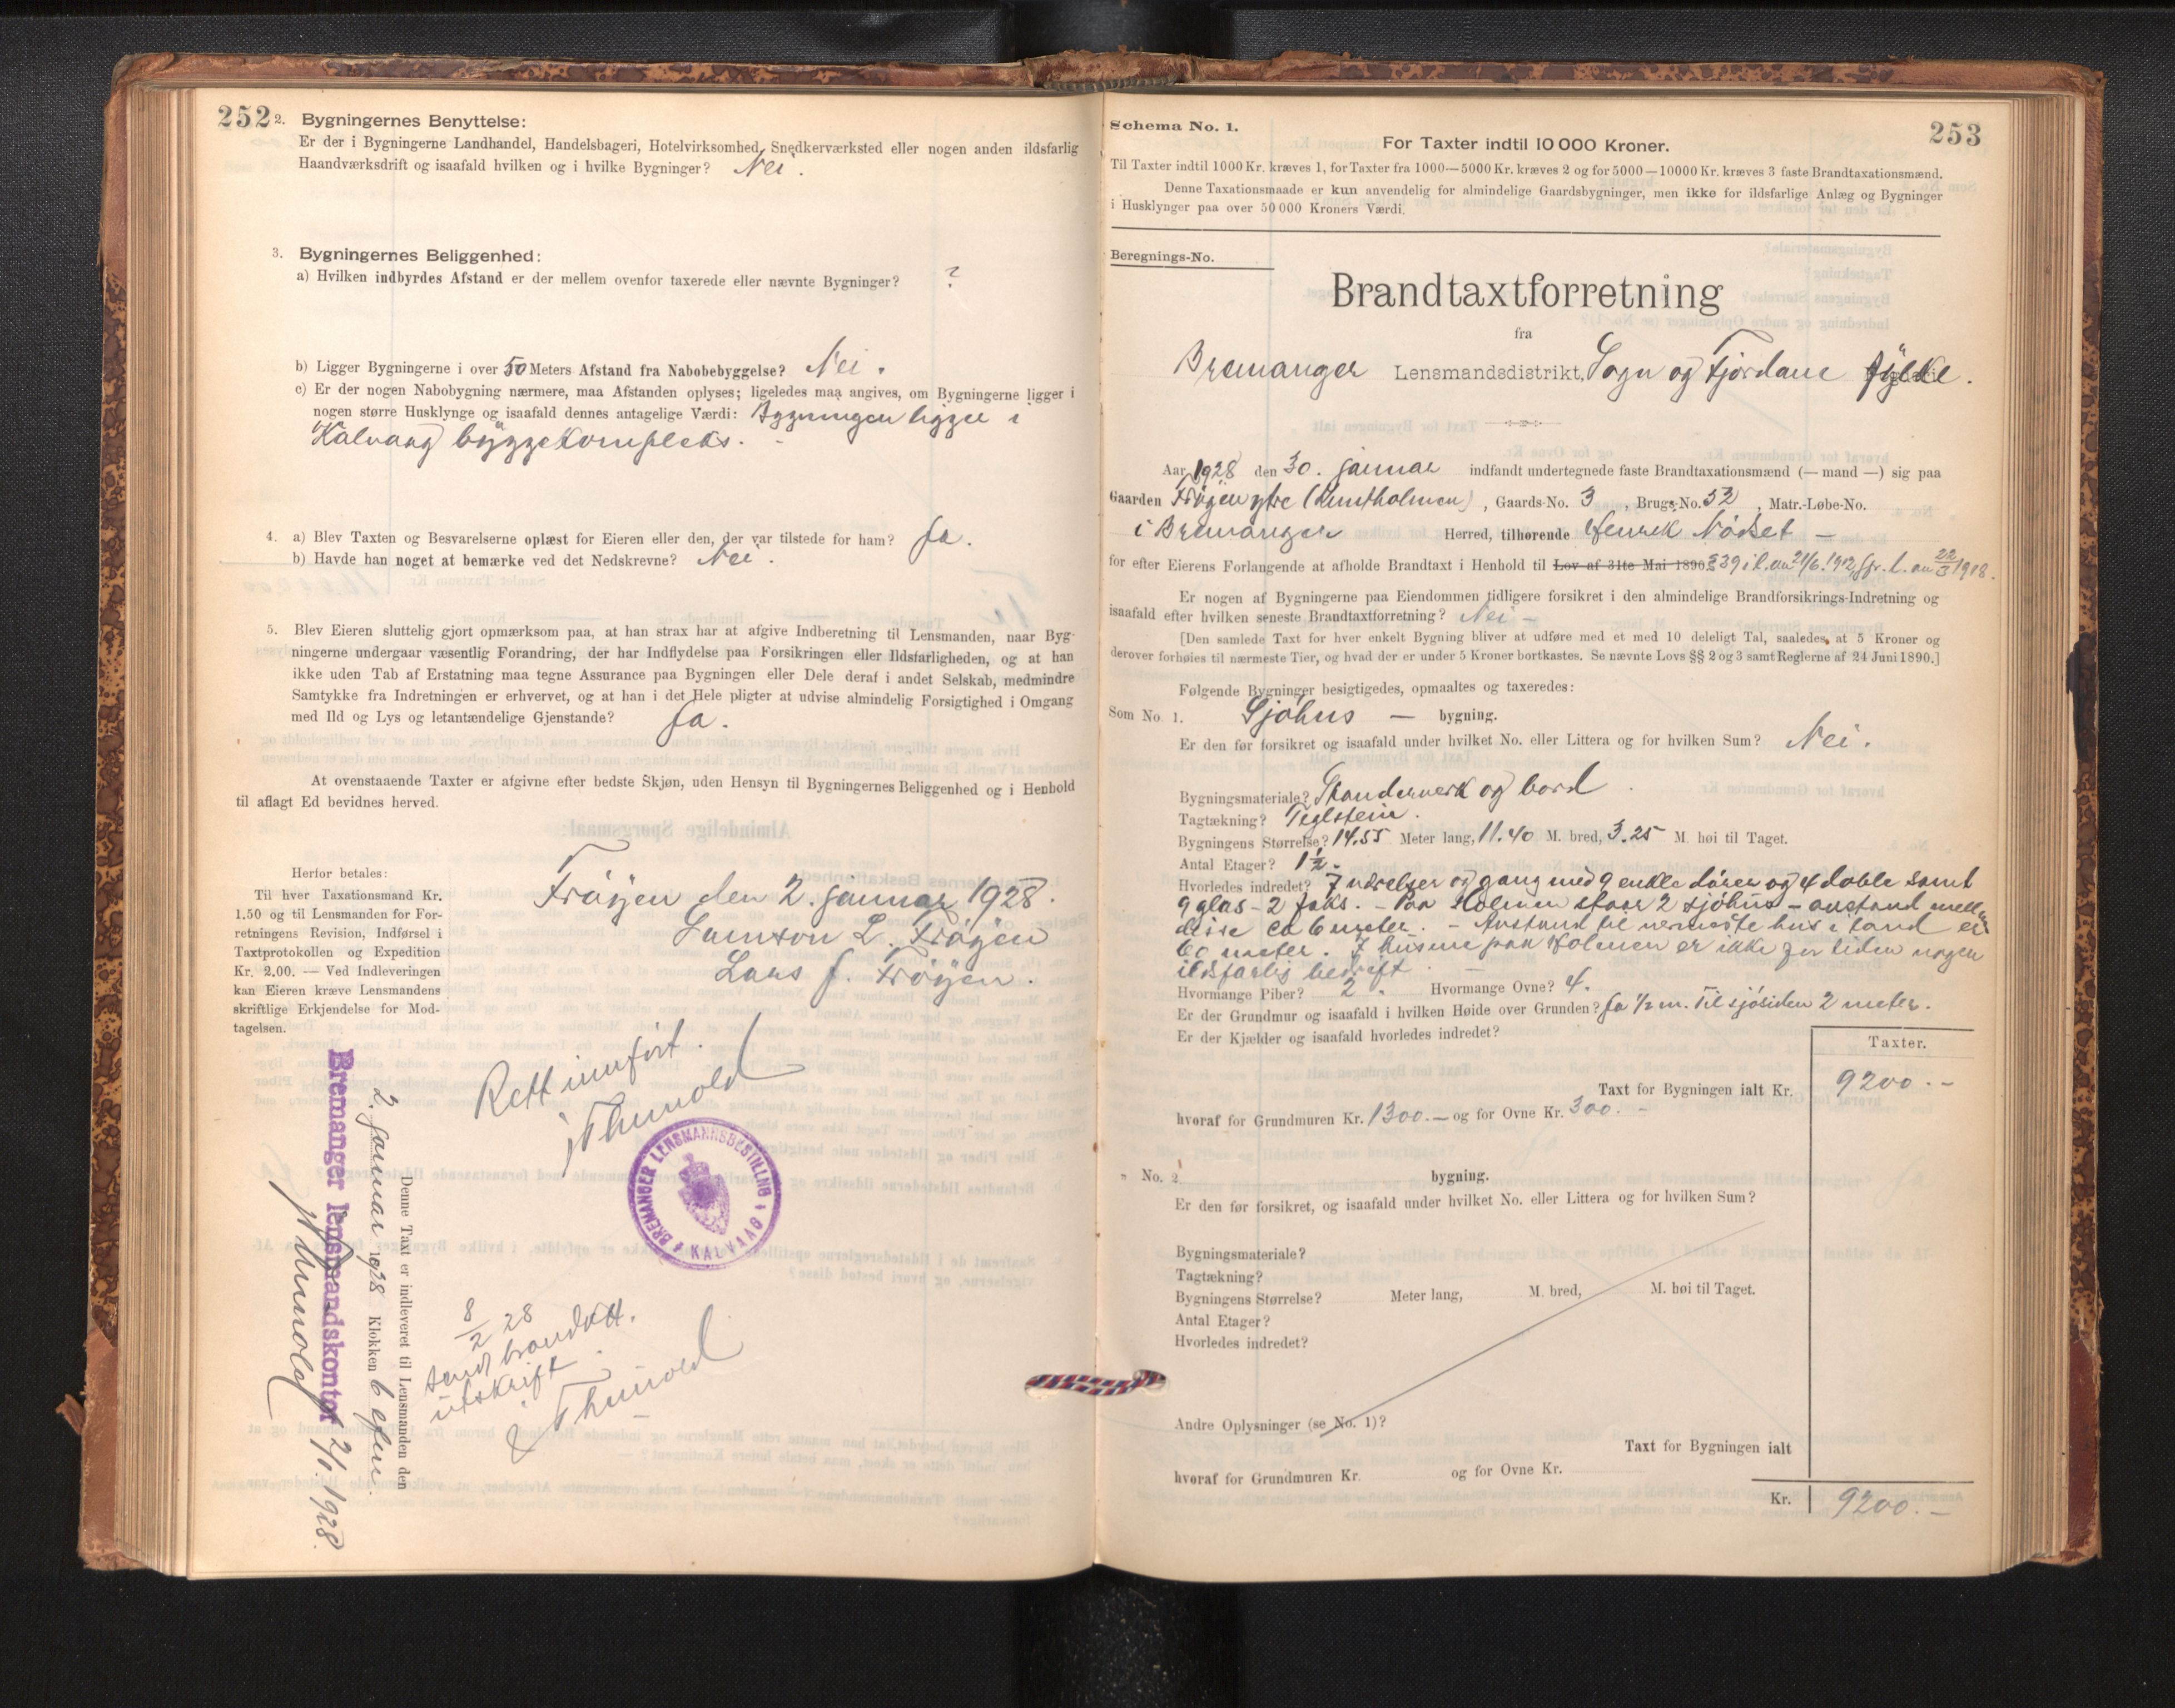 252
2. Bygningernes Benyttelse:
Er der i Bygningerne Landhandel, Handelsbageri, Hotelvirksomhed, Snedkerværksted eller nogen anden ildsfarlig
Haandværksdrift og isaafald hvilken og i hvilke Bygninger? Nei.
3. Bygningernes Beliggenhed:
a) Hvilken indbyrdes Afstand er der mellem ovenfor taxerede eller nævnte Bygninger? ?
b) Ligger Bygningerne i over 50 Meters Afstand fra Nabobebyggelse? Nei.
c) Er der nogen Nabobygning nærmere, maa Afstanden oplyses; ligeledes maa angives, om Bygningerne ligger i
nogen større Husklynge og isaafald dennes antagelige Værdi: Bygningen ligger i
Kalvaag byggekompleks. -
4. a) Blev Taxten og Besvarelserne oplæst for Eieren eller den, der var tilstede for ham? Ja.
b) Havde han noget at bemærke ved det Nedskrevne? Nei.
5. Blev Eieren sluttelig gjort opmærksom paa, at han strax har at afgive Indberetning til Lensmanden, naar Byg-
ningerne undergaar væsentlig Forandring, der har Indflydelse paa Forsikringen eller Ildsfarligheden, og at han
ikke uden Tab af Erstatning maa tegne Assurance paa Bygningen eller Dele deraf i andet Selskab, medmindre
Samtykke fra Indretningen er erhvervet, og at han i det Hele pligter at udvise almindelig Forsigtighed i Omgang
med Ild og Lys og letantændelige Gjenstande? Ja.
At ovenstaaende Taxter er afgivne efter bedste Skjøn, uden Hensyn til Bygningernes Beliggenhed og i Henhold
til aflagt Ed bevidnes herved.
Herfor betales:
Til hver Taxationsmand Kr.
1.50 og til Lensmanden for For-
retningens Revision, Indførsel i
Taxtprotokollen og Expedition
Kr. 2.00. — Ved Indleveringen
kan Eieren kræve Lensmandens
skriftlige Erkjendelse for Mod-
tagelsen.
Frøyen den 2. januar 1928.
Samson L. Frøyen
Lars J. Frøyen.
Rett innført.
Thunold
BREMANGER LENSMANNSBESTILLNG
KALVAAG
Denne Taxt er indleveret til Lensmanden den
2. januar 1928 Klokken 6 efm.
Bremanger lensmandskontor 2/1. 1928.
Thunold
8/2 28
send brandktt.
utskrift
Thunold
Schema No. 1.
253
For Taxter indtil 10 000 Kroner.
Til Taxter indtil 1000 Kr. kræves 1, for Taxter fra 1000—5000 Kr. kræves 2 og for 5000—10000 Kr. kræves 3 faste Brandtaxationsmænd.
Denne Taxationsmaade er kun anvendelig for almindelige Gaardsbygninger, men ikke for ildsfarlige Anlæg og Bygninger
i Husklynger paa over 50 000 Kroners Værdi.
Beregnings-No.
Brandtaxtforretning
fra
Bremanger Lensmandsdistrikt, Sogn og Fjordane fylke.
Aar 1928 den 30. januar indfandt undertegnede faste Brandtaxationsmænd (— mand —) sig paa
Gaarden Frøyen ytre , Gaards-No. 3 , Brugs-No. 52 , Matr.-Løbe-No.
i Bremanger Herred, tilhørende Henrik Nødset —
for efter Eierens Forlangende at afholde Brandtaxt i Henhold til Lov af 31te Mai 1890 § 39 i l. av 21/6. 1912, jfr. l. av 22/3 1918.
Er nogen af Bygningerne paa Eiendommen tidligere forsikret i den almindelige Brandforsikrings-Indretning og
isaafald efter hvilken seneste Brandtaxtforretning? Nei -
[Den samlede Taxt for hver enkelt Bygning bliver at udføre med et med 10 deleligt Tal, saaledes, at 5 Kroner og
derover forhøies til nærmeste Tier, og hvad der er under 5 Kroner bortkastes. Se nævnte Lovs §§ 2 og 3 samt Reglerne af 24 Juni 1890.]
Følgende Bygninger besigtigedes, opmaaltes og taxeredes:
Som No. 1. Sjøhus — bygning.
Er den før forsikret og isaafald under hvilket No. eller Littera og for hvilken Sum? Nei.
Bygningsmateriale? Standerverk og bord
Tagtækning? Teglstein.
Bygningens Størrelse? 14.55 Meter lang, 11.40 M. bred, 3.25 M. høi til Taget.
Antal Etager? 1½.
Hvorledes indredet? 7 værelser og gang med 9 enkle dører og 4 doble samt
9 glas - 2 faks. - Paa Holmen staar 2 sjøhus - avstand mellem
disse ca 6 meter. - Avstand til nermeste hus i land er
60 meter. I husene paa Holmen er ikke for tiden nogen
ildsfarlig bedrift.
Hvormange Piber? 2. Hvormange Ovne? 4.
Er der Grundmur og isaafald i hvilken Høide over Grunden? Ja ½ m. Til sjøsiden 2 meter.
Er der Kjælder og isaafald hvorledes indredet?
Taxter.
Taxt for Bygningen ialt Kr. 9200.-
hvoraf for Grundmuren Kr. 1300.— og for Ovne Kr. 300.-
" No. 2 bygning.
Er den før forsikret, og isaafald under hvilket No. eller Littera og for hvilken Sum?
Bygningsmateriale?
Tagtækning?
Bygningens Størrelse? Meter lang, M. bred, M. høi til Taget.
Antal Etager?
Hvorledes indredet?
Andre Oplysninger (se No. 1)?
Taxt for Bygningen ialt
hvoraf for Grundmuren Kr. og for Ovne Kr.
Kr. 9200.-